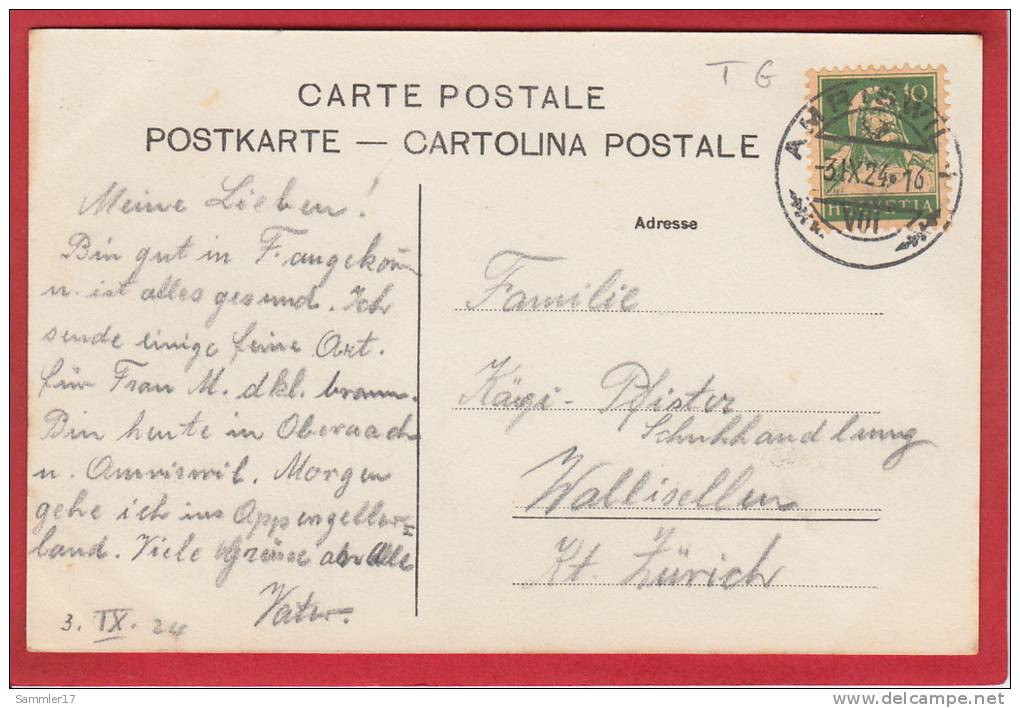 T G
CARTE POSTALE
POSTKARTE — CARTOLINA POSTALE
10
HELVETIA
AMRISWIL
-3.IX.24.16
VIII
Meine Lieben!
Bin gut in F. angekom̄
u. ist alles gesund. Ich
sende einige feine Art.
für Frau M. dkl. braun.
Bin heute in Oberaach
u. Amriswil. Morgen
gehe ich ins Appenzeller-
land. Viele Grüsse an Alle
Vater.
3. IX. 24
Adresse
Familie
Kägi - Pfister
Schuhhandlung
Wallisellen
Kt. Zürich
Sammler17
delcampe.net